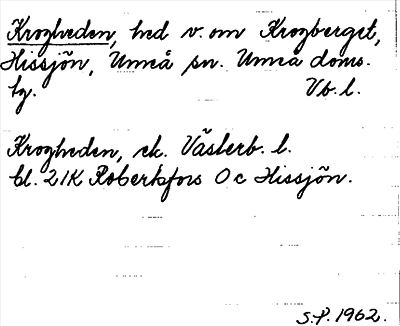 Krogheden, hed v. om Krogberget,
Hissjön, Umeå sn. Umeå doms.
hg. Vb. l.
Krogheden, ek. Västerb. l.
bl. 21K Robertsfors Oc Hissjön.
S.P. 1962.